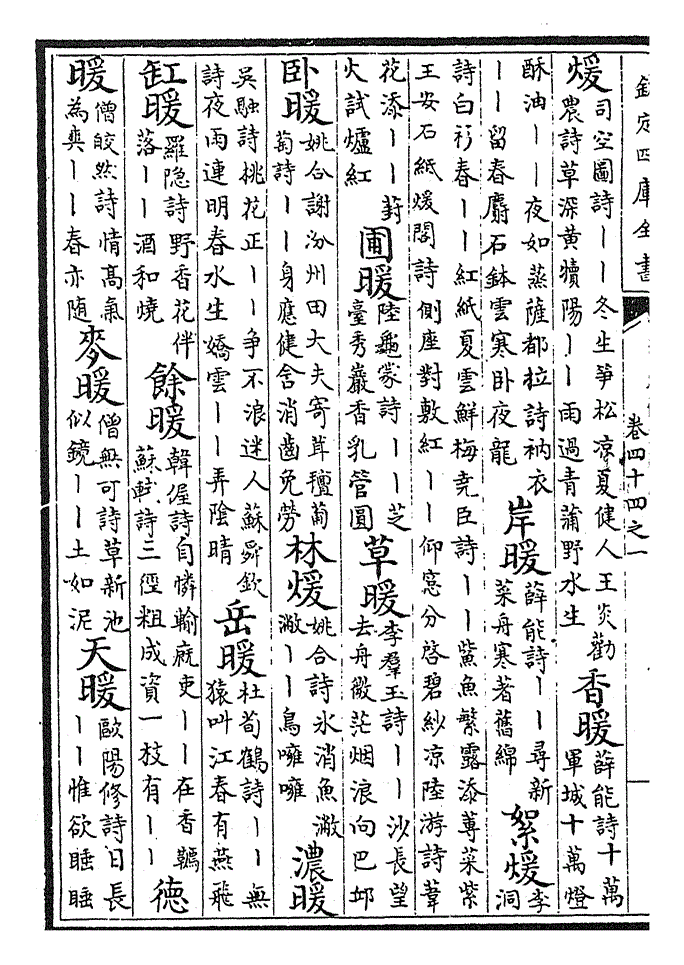 欽定四庫全書
卷四十四之一
煖
司空圖詩丨丨冬生筍松凉夏健人王炎勸
農詩草深黃犢陽丨丨雨過青蒲野水生
香暖
薛能詩十萬
軍城十萬燈
酥油丨丨夜如蒸薩都拉詩衲衣
丨丨留春麝石鉢雲寒卧夜龍
岸暖
薛能詩丨丨尋新
菜舟寒著舊綿
絮煖
李
洞
詩白衫春丨丨紅紙夏雲鮮梅堯臣詩丨丨鮆魚繁露添蓴菜紫
王安石紙煖閣詩側座對敷紅丨丨仰窻分啓碧紗凉陸游詩葦
花添丨丨葑
火試爐紅
圃暖
陸龜蒙詩丨丨芝
臺秀巖香乳管圓
草暖
李羣玉詩丨丨沙長望
去舟微茫烟浪向巴邱
卧暖
姚合謝汾州田大夫寄茸氊葡
萄詩丨丨身應健含消齒免勞
林煖
姚合詩氷消魚潎
潎丨丨鳥嗈嗈
濃暖
吳融詩桃花正丨丨爭不浪迷人蘇舜欽
詩夜雨連明春水生嬌雲丨丨弄陰晴
岳暖
杜荀鶴詩丨丨無
猿叫江春有燕飛
缸暖
羅隱詩野香花伴
落丨丨酒和燒
餘暖
韓偓詩自憐輸廐吏丨丨在香韉
蘇軾詩三徑粗成資一枝有丨丨
德
暖
僧皎然詩情高氣
為爽丨丨春亦隨
麥暖
僧無可詩草新池
似鏡丨丨土如泥
天暖
歐陽修詩日長
丨丨惟欲睡睡